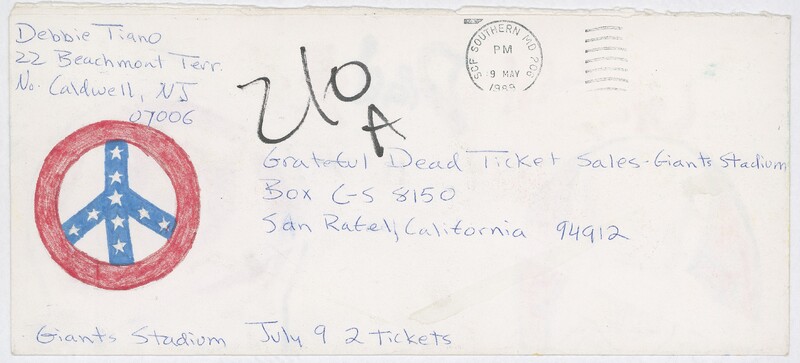 Debbie Tiano
22 Beachmont Terr.
No. Caldwell, NJ
07006
210
A
SCF SOUTHERN MD 206
PM
9 MAY
1989
Grateful Dead Ticket Sales-Giants Stadium
Box GS 8150
San Rafel, California 94912
Giants Stadium July 9 2 Tickets